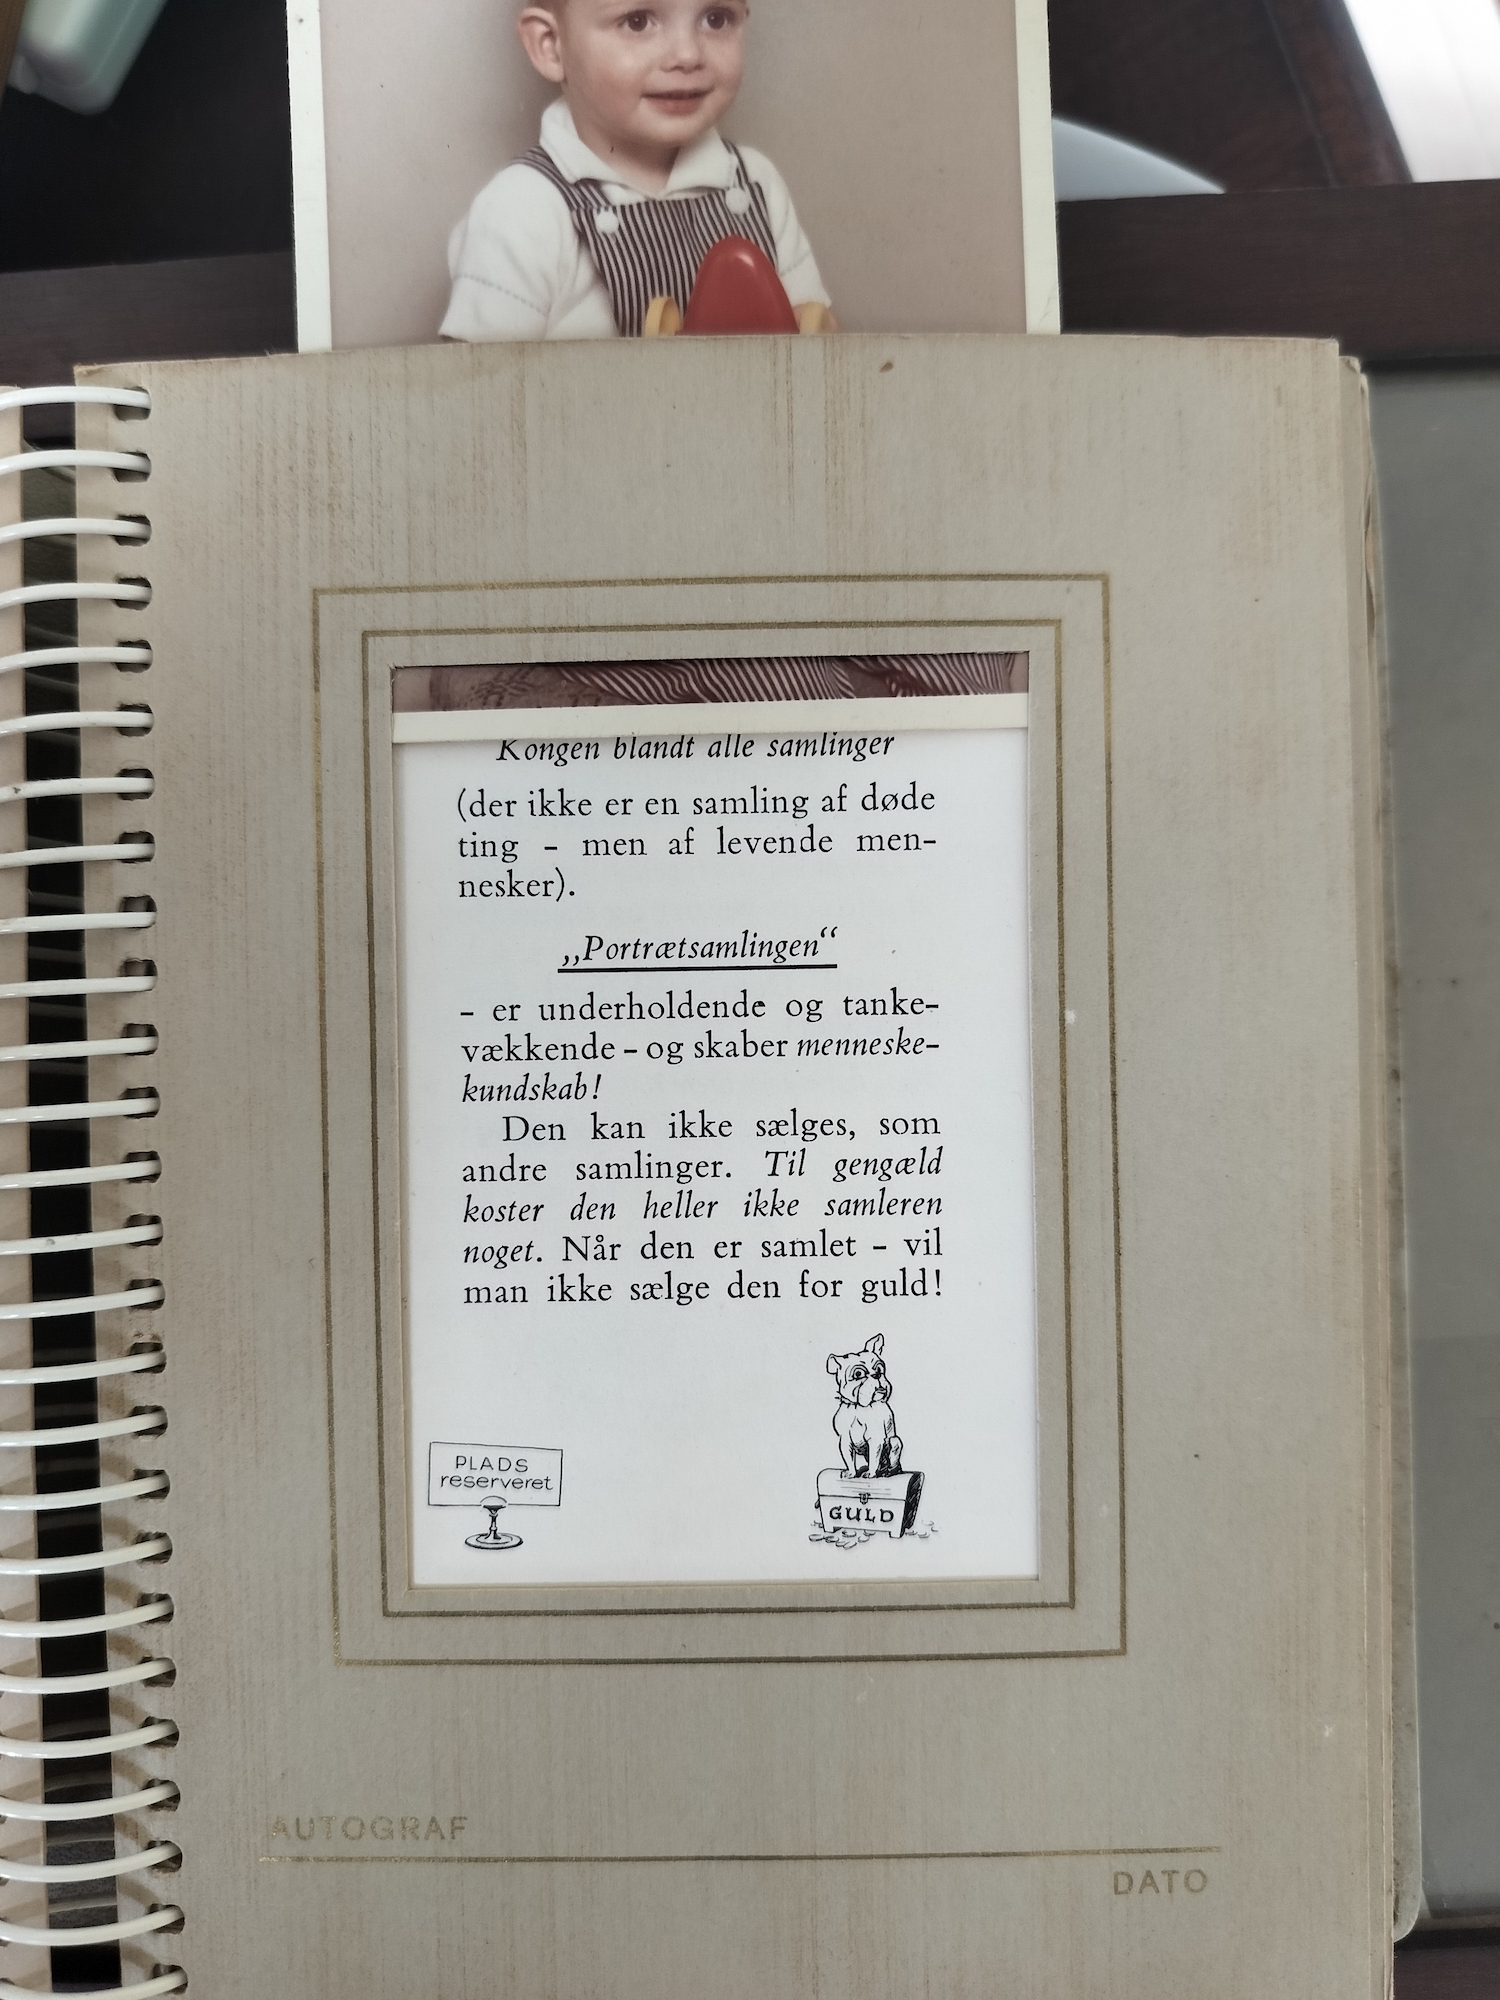 Kongen blandt alle samlinger
(der ikke er en samling af døde
ting - men af levende men-
nesker).
„Portrætsamlingen“
- er underholdende og tanke-
vækkende - og skaber menneske-
kundskab!
Den kan ikke sælges, som
andre samlinger. Til gengæld
koster den heller ikke samleren
noget. Når den er samlet - vil
man ikke sælge den for guld!
PLADS
reserveret
GULD
AUTOGRAF
DATO